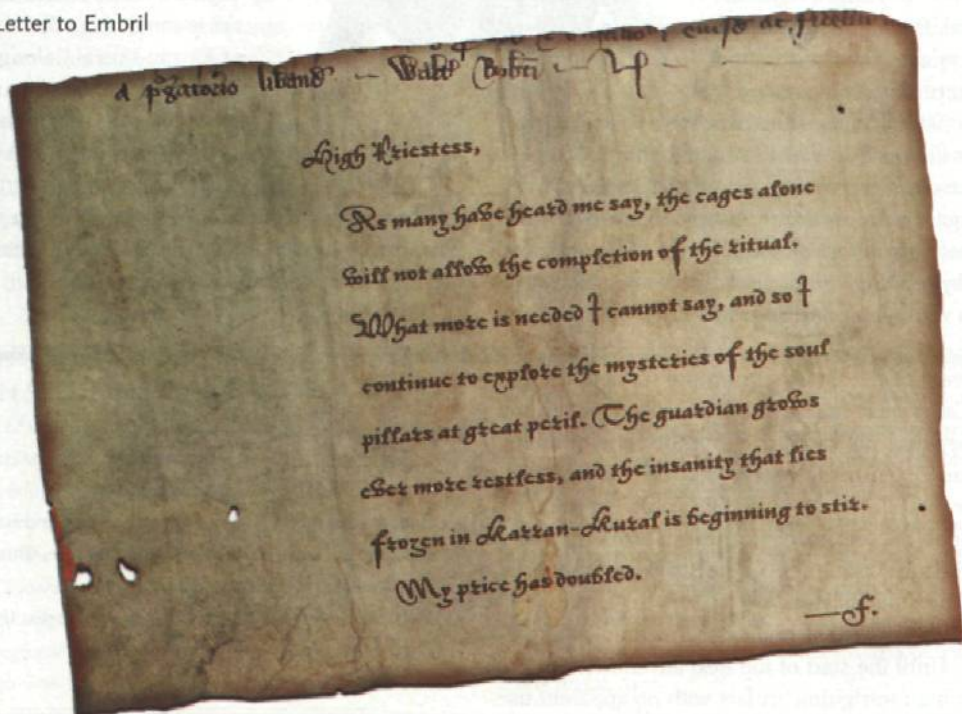 Letter to Embril
High Priestess,
As many have heard me say, the cages alone
will not allow the completion of the ritual.
What more is needed I cannot say, and so I
continue to explore the mysteries of the soul
pillars at great peril. The guardian grows
ever more restless, and the insanity that lies
frozen in Karran-Kural is beginning to stir.
My price has doubled.
—f.